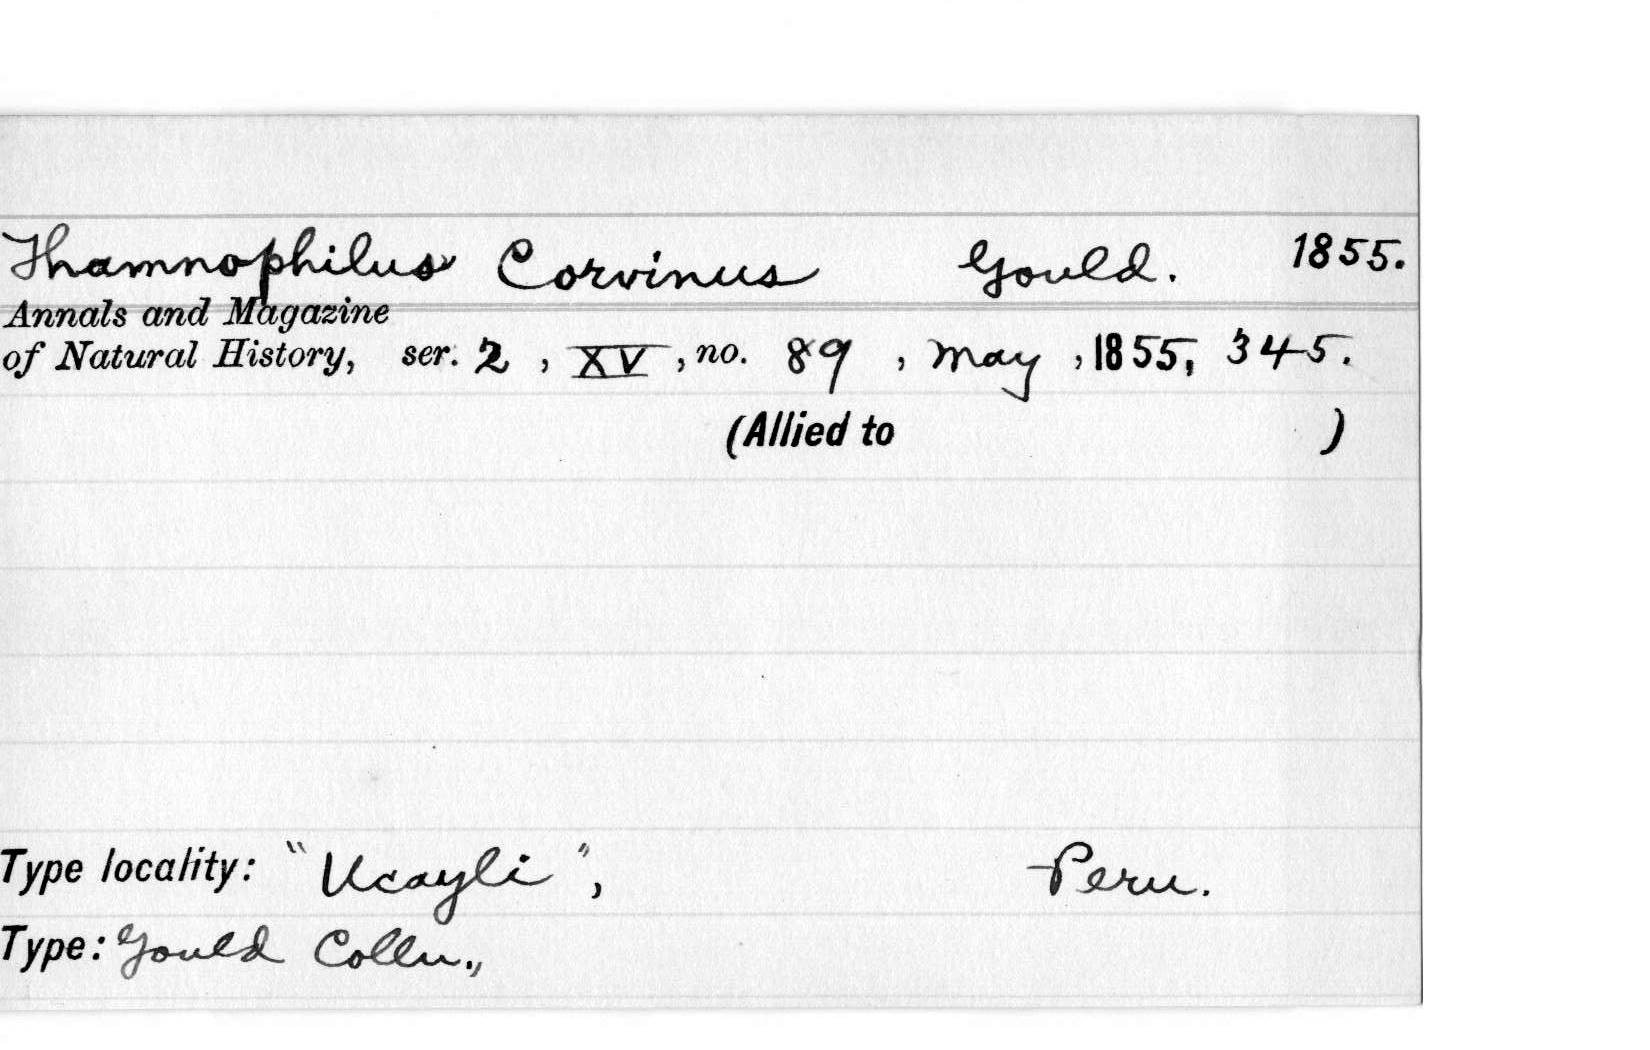 Thamnophilus Corvinus Gould. 1855.
Annals and Magazine
of Natural History, ser. 2, XV, no. 89, May, 1855, 345.
(Allied to )
Type locality: "Ucayli", Peru.
Type: Gould Colln.,